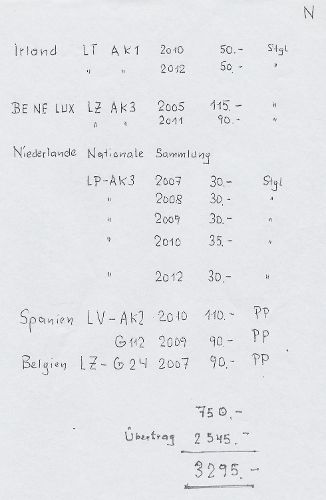 N
Irland LT AK1 2010 50.- Stgl
" " 2012 50.- "
BENELUX LZ AK3 2005 115.- "
" " 2011 90.- "
Niederlande Nationale Sammlung
LP-AK3 2007 30.- Stgl
" 2008 30.- "
" 2009 30.- "
" 2010 35.- "
" 2012 30.- "
Spanien LV-AK2 2010 110.- PP
G112 2009 90.- PP
Belgien LZ-G24 2007 90.- PP
750.-
Übertrag 2545.-
3295.-